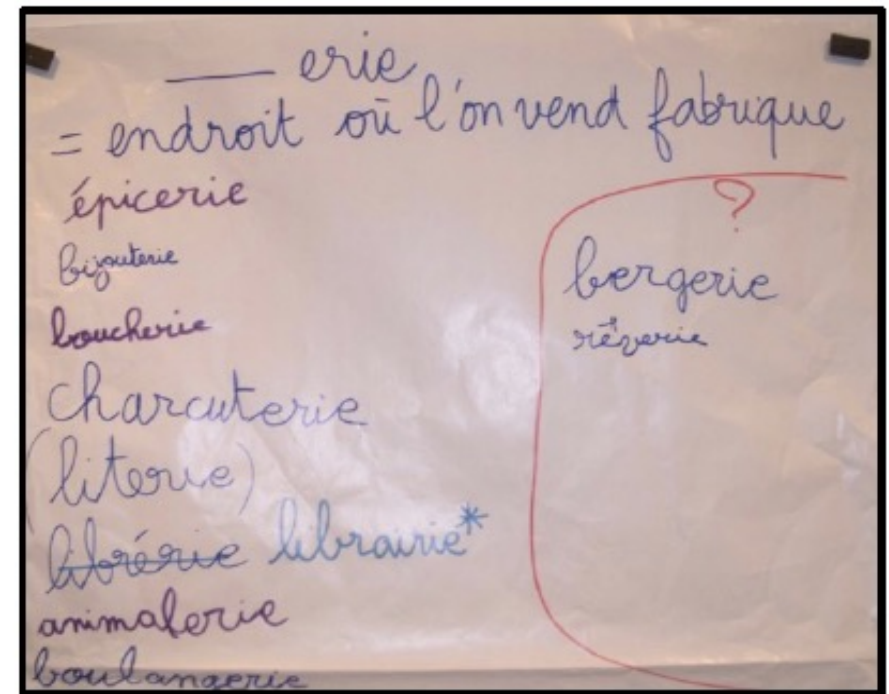 ____ erie
= endroit où l'on vend fabrique
épicerie
bijouterie
boucherie
charcuterie
(literie)
librérie librairie*
animalerie
boulangerie
?
bergerie
rêverie